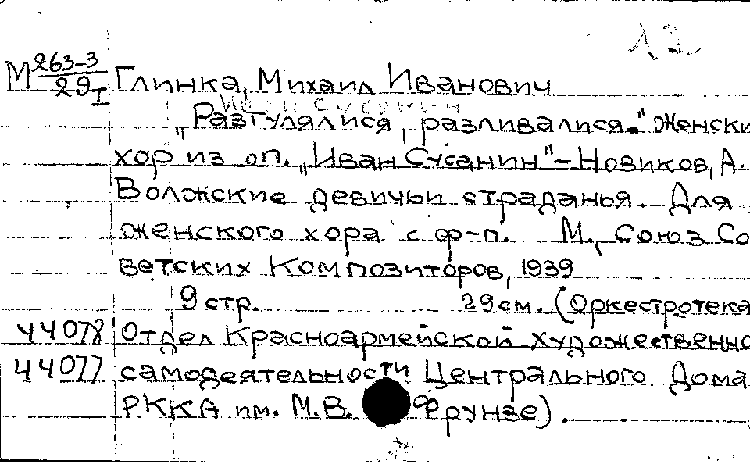 12
М 263-3 Глинка, Михаил Иванович
29 I
Иван Сусанин
„Разгулялися, разливалися." Женски
хор из оп. „Иван Сусанин" – Новиков, А.
Волжские девичьи страданья. Для
женского хора с ф-п. М., Союз Со
ветских Композиторов, 1939
9 стр. 29 см. (Оркестротека
44078 Отдел Красноармейской художественно
44077 самодеятельности Центрального Дома
РККА им. М.В. Фрунзе).